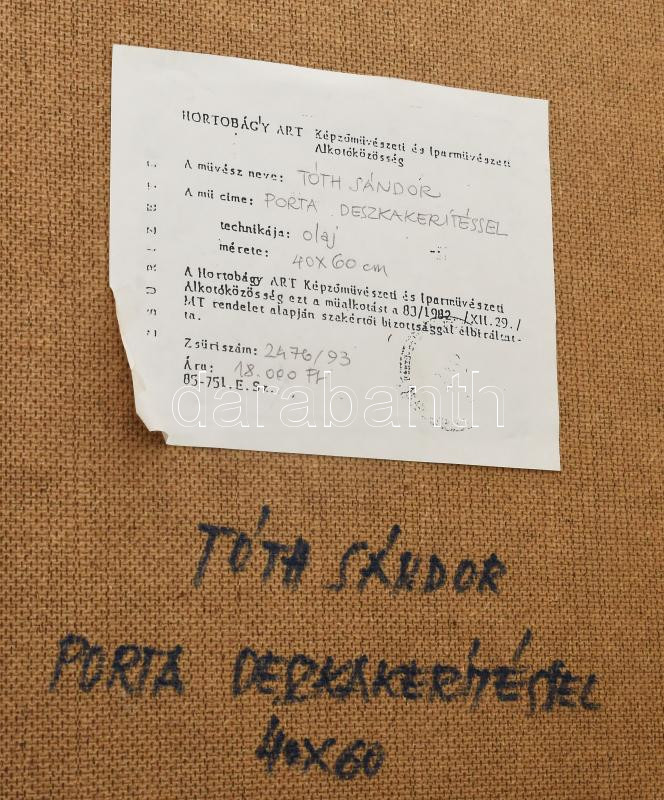 HORTOBÁGY ART Képzőművészeti és Iparművészeti
Alkotóközösség
A művész neve: TÓTH SÁNDOR
A mű címe: PORTA DESZKAKERÍTÉSSEL
technikája: olaj
mérete: 40X60 cm
A Hortobágy ART Képzőművészeti és Iparművészeti
Alkotóközösség ezt a műalkotást a 83/1982. /XII.29./
MT rendelet alapján szakértői bizottsággal elbíráltat-
ta.
Zsűriszám: 2476/93
Ára: 18.000 Ft
85-751. E.Sz.
darabanth
TÓTH SÁNDOR
PORTA DESZKAKERÍTÉSSEL
40X60